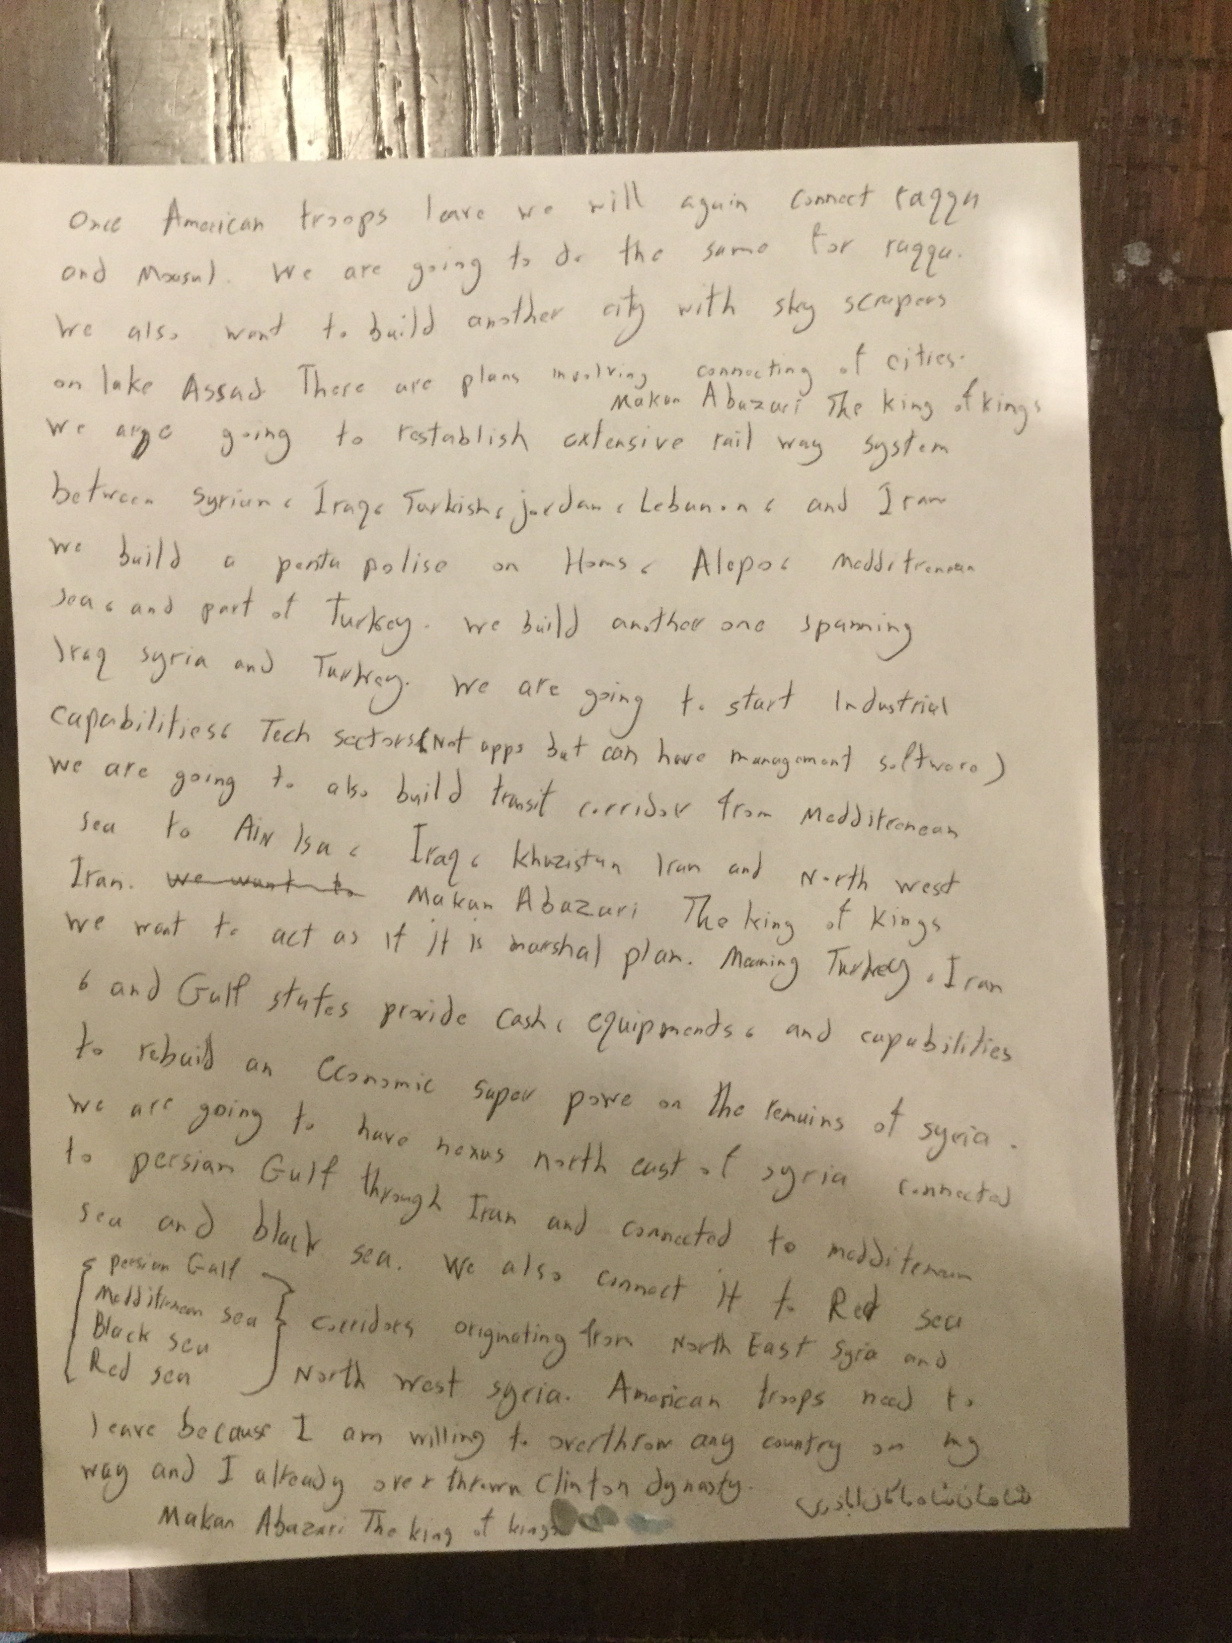 Once American troops leave we will again connect raqqa
and Mousul. We are going to do the same for raqqa.
We also want to build another city with sky scrapers
on lake Assad There are plans involving connecting of cities.
Makan Abazari The king of kings
We are going to restablish extensive rail way system
between syrian, Iraq, Turkish, jordan, Lebanon, and Iran
we build a penta polise on Homs, Alepo, Medditrenean
sea, and part of Turkey. We build another one spanning
Iraq syria and Turkey. We are going to start Industrial
capabilities, Tech sectors (Not apps but can have management software)
We are going to also build transit corridor from Medditrenean
sea to AIN Isa, Iraq, khuzistan Iran and North west
Iran. We want to Makan Abazari The king of kings
We want to act as if it is marshal plan. Meaning Turkey, Iran
, and Gulf states provide cash, equipments, and capabilities
to rebuild an economic super powe on the remains of syria.
We are going to have nexus north east of syria connected
to persian Gulf through Iran and connected to medditerean
sea and black sea. We also connect it to Red sea
persian Gulf
Medditrenean sea
Black sea
Red sea
corridors originating from North East Syria and
North west syria. American troops need to
leave because I am willing to overthrow any country on my
way and I already over thrown Clinton dynasty.
شاهان شاه ماکان اباذری
Makan Abazari The king of kings